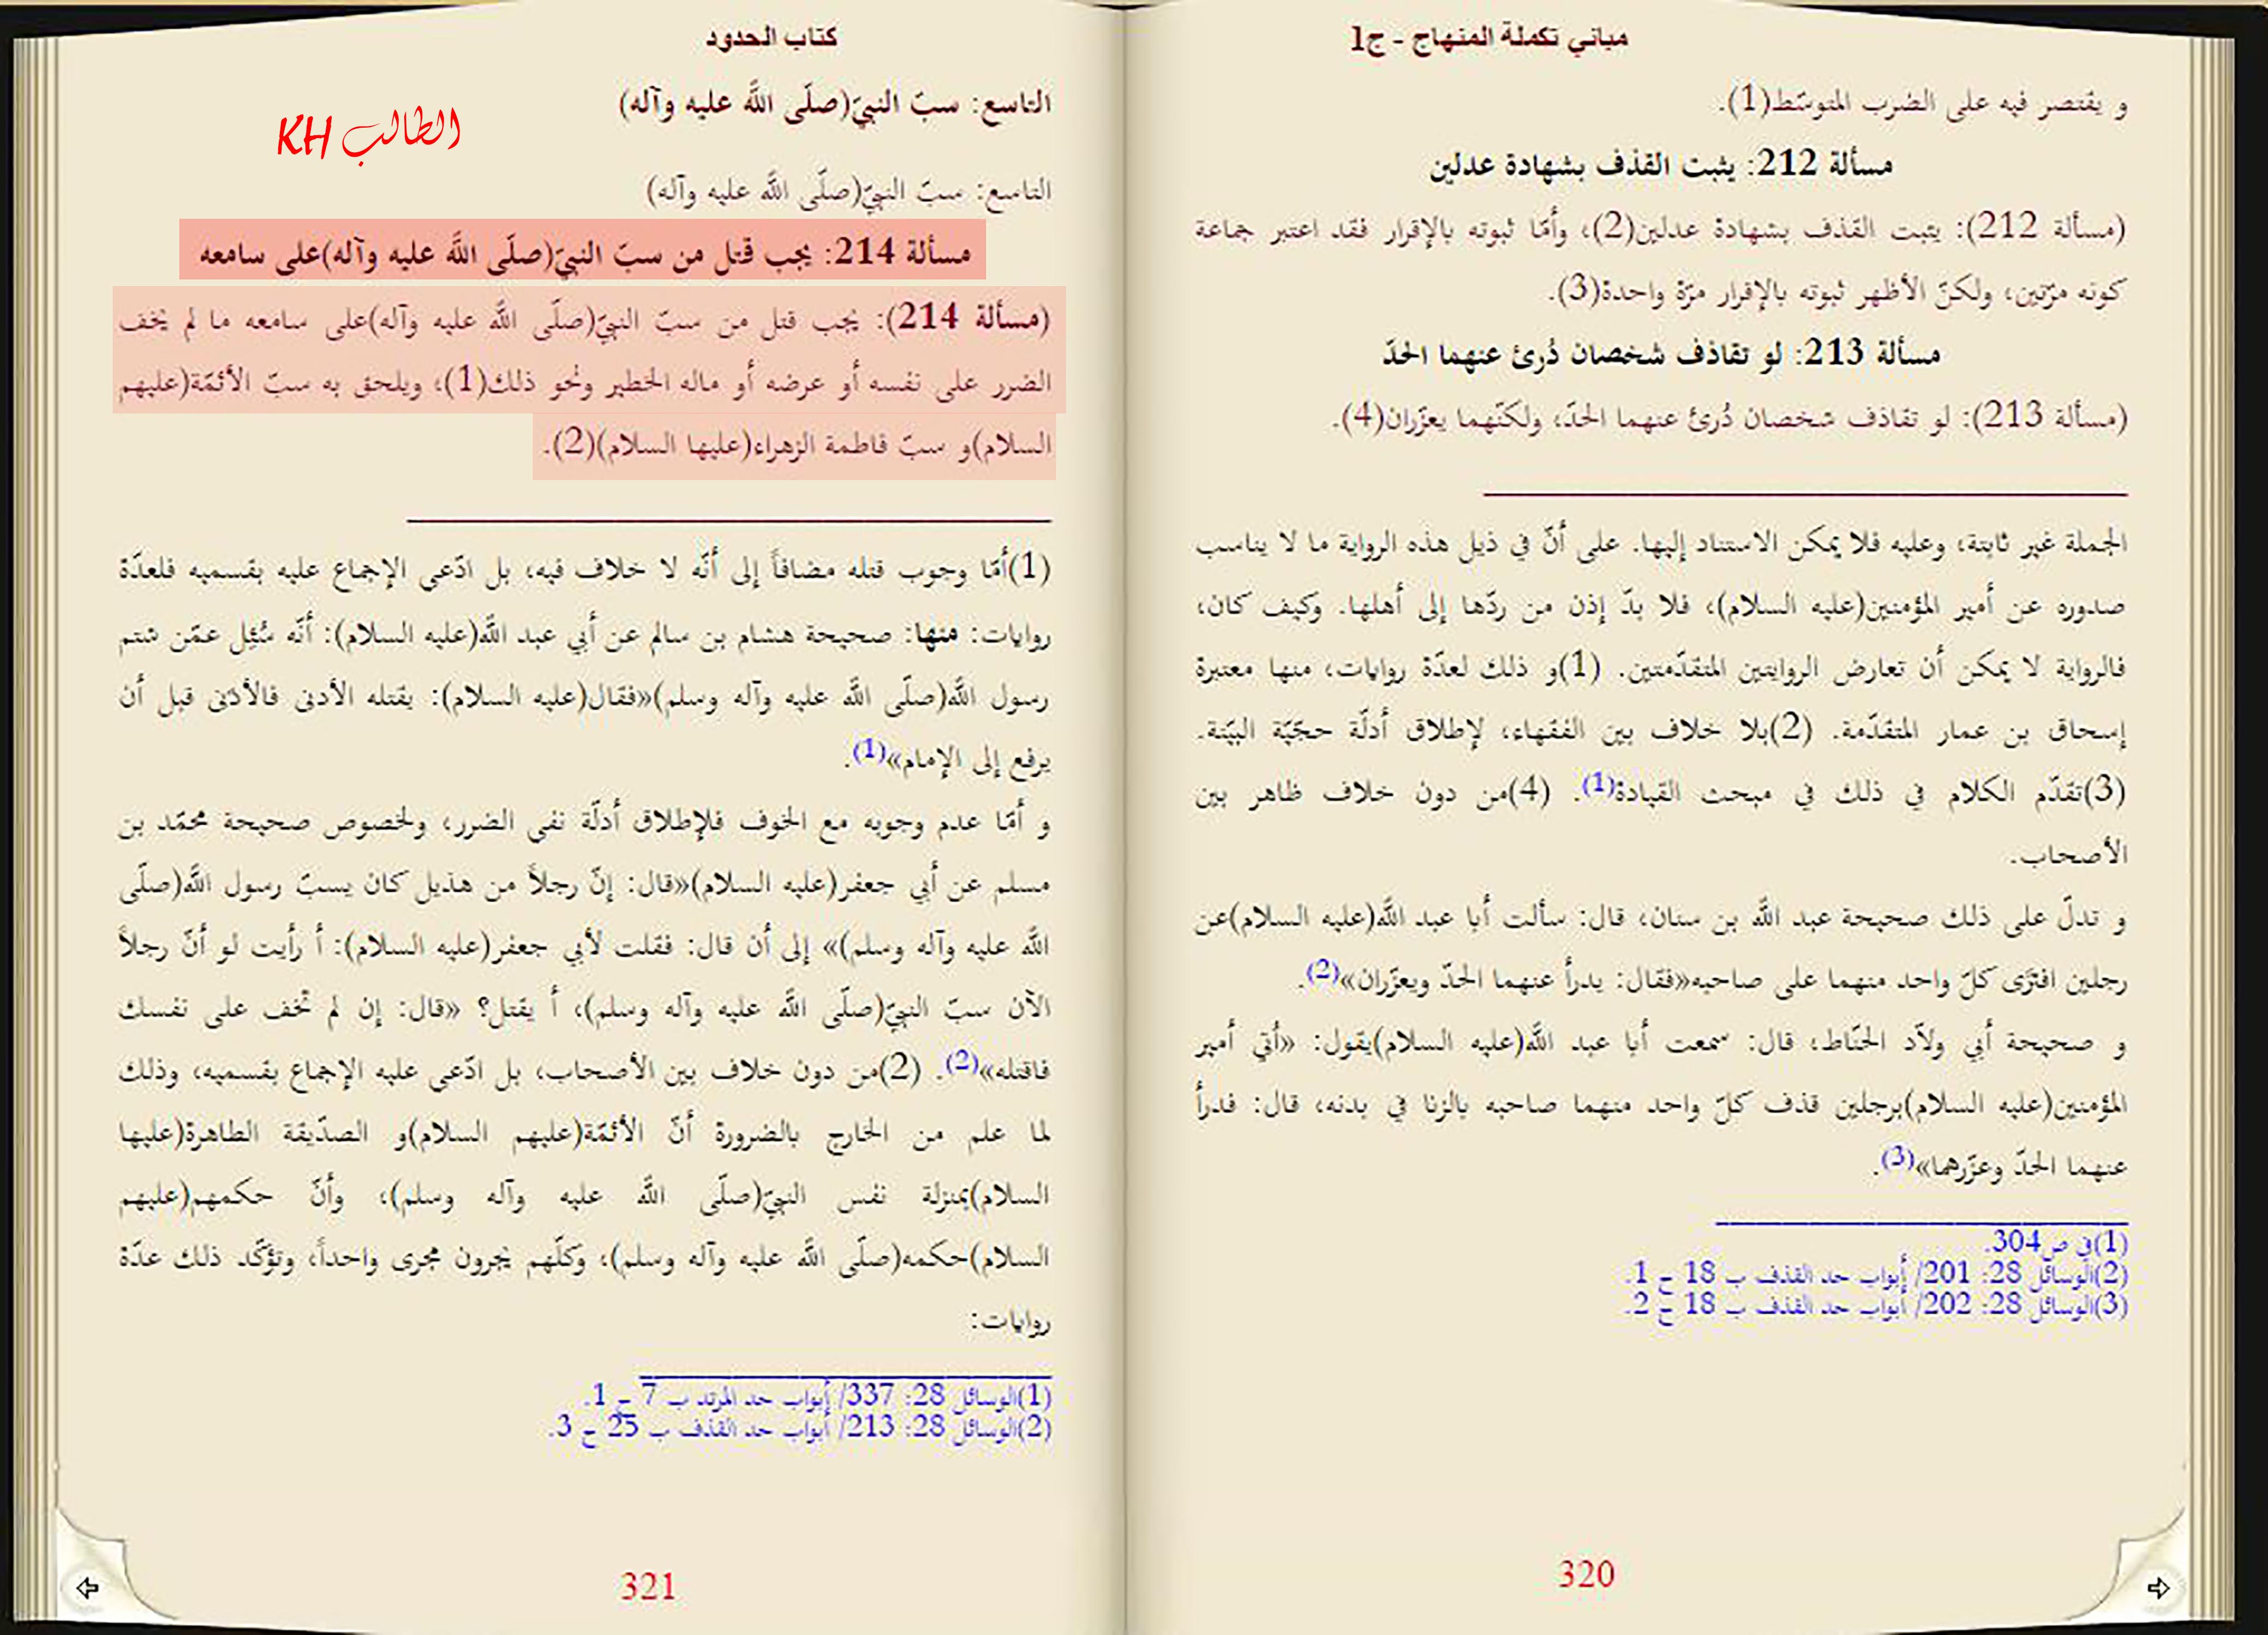 مباني تكملة المنهاج - ج1
و يقتصر فيه على الضرب المتوسّط(1).
مسألة 212: يثبت القذف بشهادة عدلين
(مسألة 212): يثبت القذف بشهادة عدلين(2)، وأمّا ثبوته بالإقرار فقد اعتبر جماعة
كونه مرّتين، ولكنّ الأظهر ثبوته بالإقرار مرّة واحدة(3).
مسألة 213: لو تقاذف شخصان دُرئ عنهما الحدّ
(مسألة 213): لو تقاذف شخصان دُرئ عنهما الحدّ، ولكنّهما يعزّران(4).
الجملة غير ثابتة، وعليه فلا يمكن الاستناد إليها. على أنّ في ذيل هذه الرواية ما لا يناسب
صدوره عن أمير المؤمنين(عليه السلام)، فلا بدّ إذن من ردّها إلى أهلها. وكيف كان،
فالرواية لا يمكن أن تعارض الروايتين المتقدّمتين. (1)و ذلك لعدّة روايات، منها معتبرة
إسحاق بن عمار المتقدّمة. (2)بلا خلاف بين الفقهاء، لإطلاق أدلّة حجّيّة البيّنة.
(3)تقدّم الكلام في ذلك في مبحث القيادة(1). (4)من دون خلاف ظاهر بين
الأصحاب.
و تدلّ على ذلك صحيحة عبد اللّه بن سنان، قال: سألت أبا عبد اللّه(عليه السلام)عن
رجلين افترى كلّ واحد منهما على صاحبه«فقال: يدرأ عنهما الحدّ ويعزّران»(2).
و صحيحة أبي ولاّد الحنّاط، قال: سمعت أبا عبد اللّه(عليه السلام)يقول: «أُتي أمير
المؤمنين(عليه السلام)برجلين قذف كلّ واحد منهما صاحبه بالزنا في بدنه، قال: فدرأ
عنهما الحدّ وعزّرهما»(3).
(1)في ص304.
(2)الوسائل 28: 201/ أبواب حد القذف ب 18 ح 1.
(3)الوسائل 28: 202/ أبواب حد القذف ب 18 ح 2.
320
كتاب الحدود
التاسع: سبّ النبيّ(صلّى اللّه عليه وآله)
الطالب KH
التاسع: سبّ النبيّ(صلّى اللّه عليه وآله)
مسألة 214: يجب قتل من سبّ النبيّ(صلّى اللّه عليه وآله)على سامعه
(مسألة 214): يجب قتل من سبّ النبيّ(صلّى اللّه عليه وآله)على سامعه ما لم يخف
الضرر على نفسه أو عرضه أو ماله الخطير ونحو ذلك(1)، ويلحق به سبّ الأئمّة(عليهم
السلام)و سبّ فاطمة الزهراء(عليها السلام)(2).
(1)أمّا وجوب قتله مضافاً إلى أنّه لا خلاف فيه، بل ادّعى الإجماع عليه بقسميه فلعدّة
روايات: منها: صحيحة هشام بن سالم عن أبي عبد اللّه(عليه السلام): أنّه سُئِل عمّن شتم
رسول اللّه(صلّى اللّه عليه وآله وسلم)«فقال(عليه السلام): يقتله الأدنى فالأدنى قبل أن
يرفع إلى الإمام»(1).
و أمّا عدم وجوبه مع الخوف فلإطلاق أدلّة نفي الضرر، ولخصوص صحيحة محمّد بن
مسلم عن أبي جعفر(عليه السلام)«قال: إنّ رجلاً من هذيل كان يسبّ رسول اللّه(صلّى
اللّه عليه وآله وسلم)» إلى أن قال: فقلت لأبي جعفر(عليه السلام): أ رأيت لو أنّ رجلاً
الآن سبّ النبيّ(صلّى اللّه عليه وآله وسلم)، أ يقتل؟ «قال: إن لم تخف على نفسك
فاقتله»(2). (2)من دون خلاف بين الأصحاب، بل ادّعى عليه الإجماع بقسميه، وذلك
لما علم من الخارج بالضرورة أنّ الأئمّة(عليهم السلام)و الصدّيقة الطاهرة(عليها
السلام)بمنزلة نفس النبيّ(صلّى اللّه عليه وآله وسلم)، وأنّ حكمهم(عليهم
السلام)حكمه(صلّى اللّه عليه وآله وسلم)، وكلّهم يجرون مجرى واحداً، وتؤكّد ذلك عدّة
روايات:
(1)الوسائل 28: 337/ أبواب حد المرتد ب 7 ح 1.
(2)الوسائل 28: 213/ أبواب حد القذف ب 25 ح 3.
321